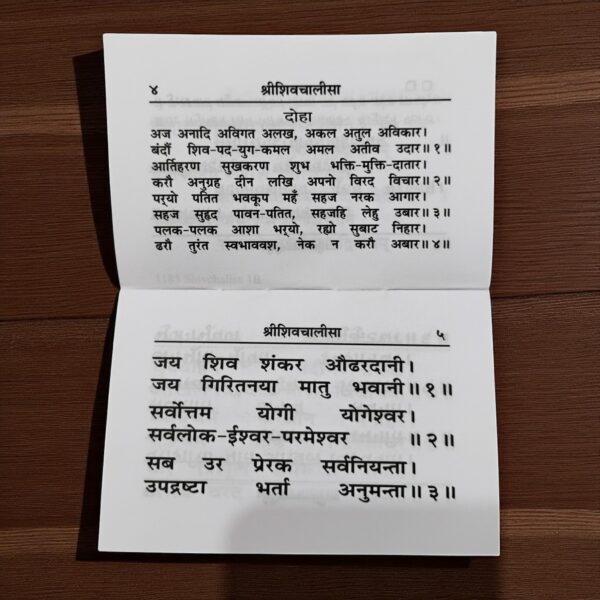 ४ श्रीशिवचालीसा
दोहा
अज अनादि अविगत अलख, अकल अतुल अविकार।
बंदौं शिव-पद-युग-कमल अमल अतीव उदार॥१॥
आर्तिहरण सुखकरण शुभ भक्ति-मुक्ति-दातार।
करौ अनुग्रह दीन लखि अपनो विरद विचार॥२॥
पर्यो पतित भवकूप महँ सहज नरक आगार।
सहज सुहृद पावन-पतित, सहजहि लेहु उबार॥३॥
पलक-पलक आशा भर्यो, रह्यो सुबाट निहार।
ढरौ तुरंत स्वभाववश, नेक न करौ अबार॥४॥
श्रीशिवचालीसा ५
जय शिव शंकर औढरदानी।
जय गिरितनया मातु भवानी॥१॥
सर्वोत्तम योगी योगेश्वर।
सर्वलोक-ईश्वर-परमेश्वर ॥२॥
सब उर प्रेरक सर्वनियन्ता।
उपद्रष्टा भर्ता अनुमन्ता॥३॥